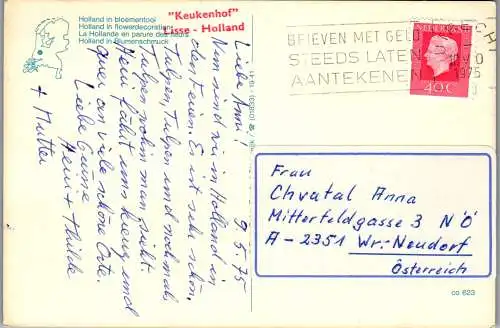 Holland in bloementooi
Holland in flowerdecoration
La Hollande en parure des fleurs
Holland in Blumenschmuck
"Keukenhof"
Lisse - Holland
BRIEVEN MET GELD
STEEDS LATEN
AANTEKENEN
1975
NEDERLAND
40 C
9.5.75
Liebe Anni!
Nun sind wir in Holland an
Es ist sehr schön,
Tulpen, Tulpen und nochmals
Tulpen wohin man sieht.
Heini fährt uns kreuz und
quer an viele schöne Orte.
Liebe Grüße
Heini + Thilde
+ Mutter
Frau
Chvatal Anna
Mitterfeldgasse 3 NÖ
A-2351 Wr. Neudorf
Österreich
co 623